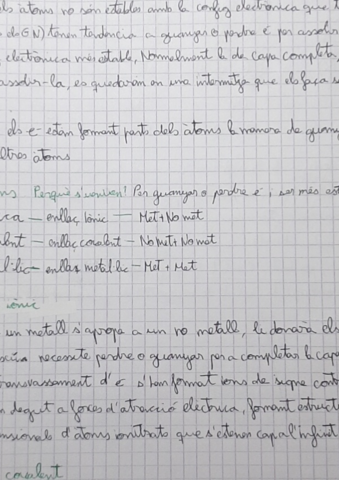 ls àtoms no són estables amb la config electrònica que t
de GN) tenen tendència a guanyar o perdre é per assolir
electrònica més estable, Normalment la de capa completa,
assolir-la, es quedaran en una intermitja que els faça
els e- estan formant parts dels àtoms la manera de guany
ltres àtoms
ns Perquè s'uneixen? Per guanyar o perdre é, ser més est
ca — enllaç iònic — Met + No met
lent — enllaç covalent — No met + No met
l·lic — enllaç metàl·lic — Met + Met
iònic
un metall s'apropa a un no metall, li donarà els
necessite perdre o guanyar per a completar la capa
transvassament d'é s'han format ions de signe cont
degut a forces d'atracció elèctrica, formant estruct
nsionals d'àtoms que s'estenen cap a l'infinit
covalent